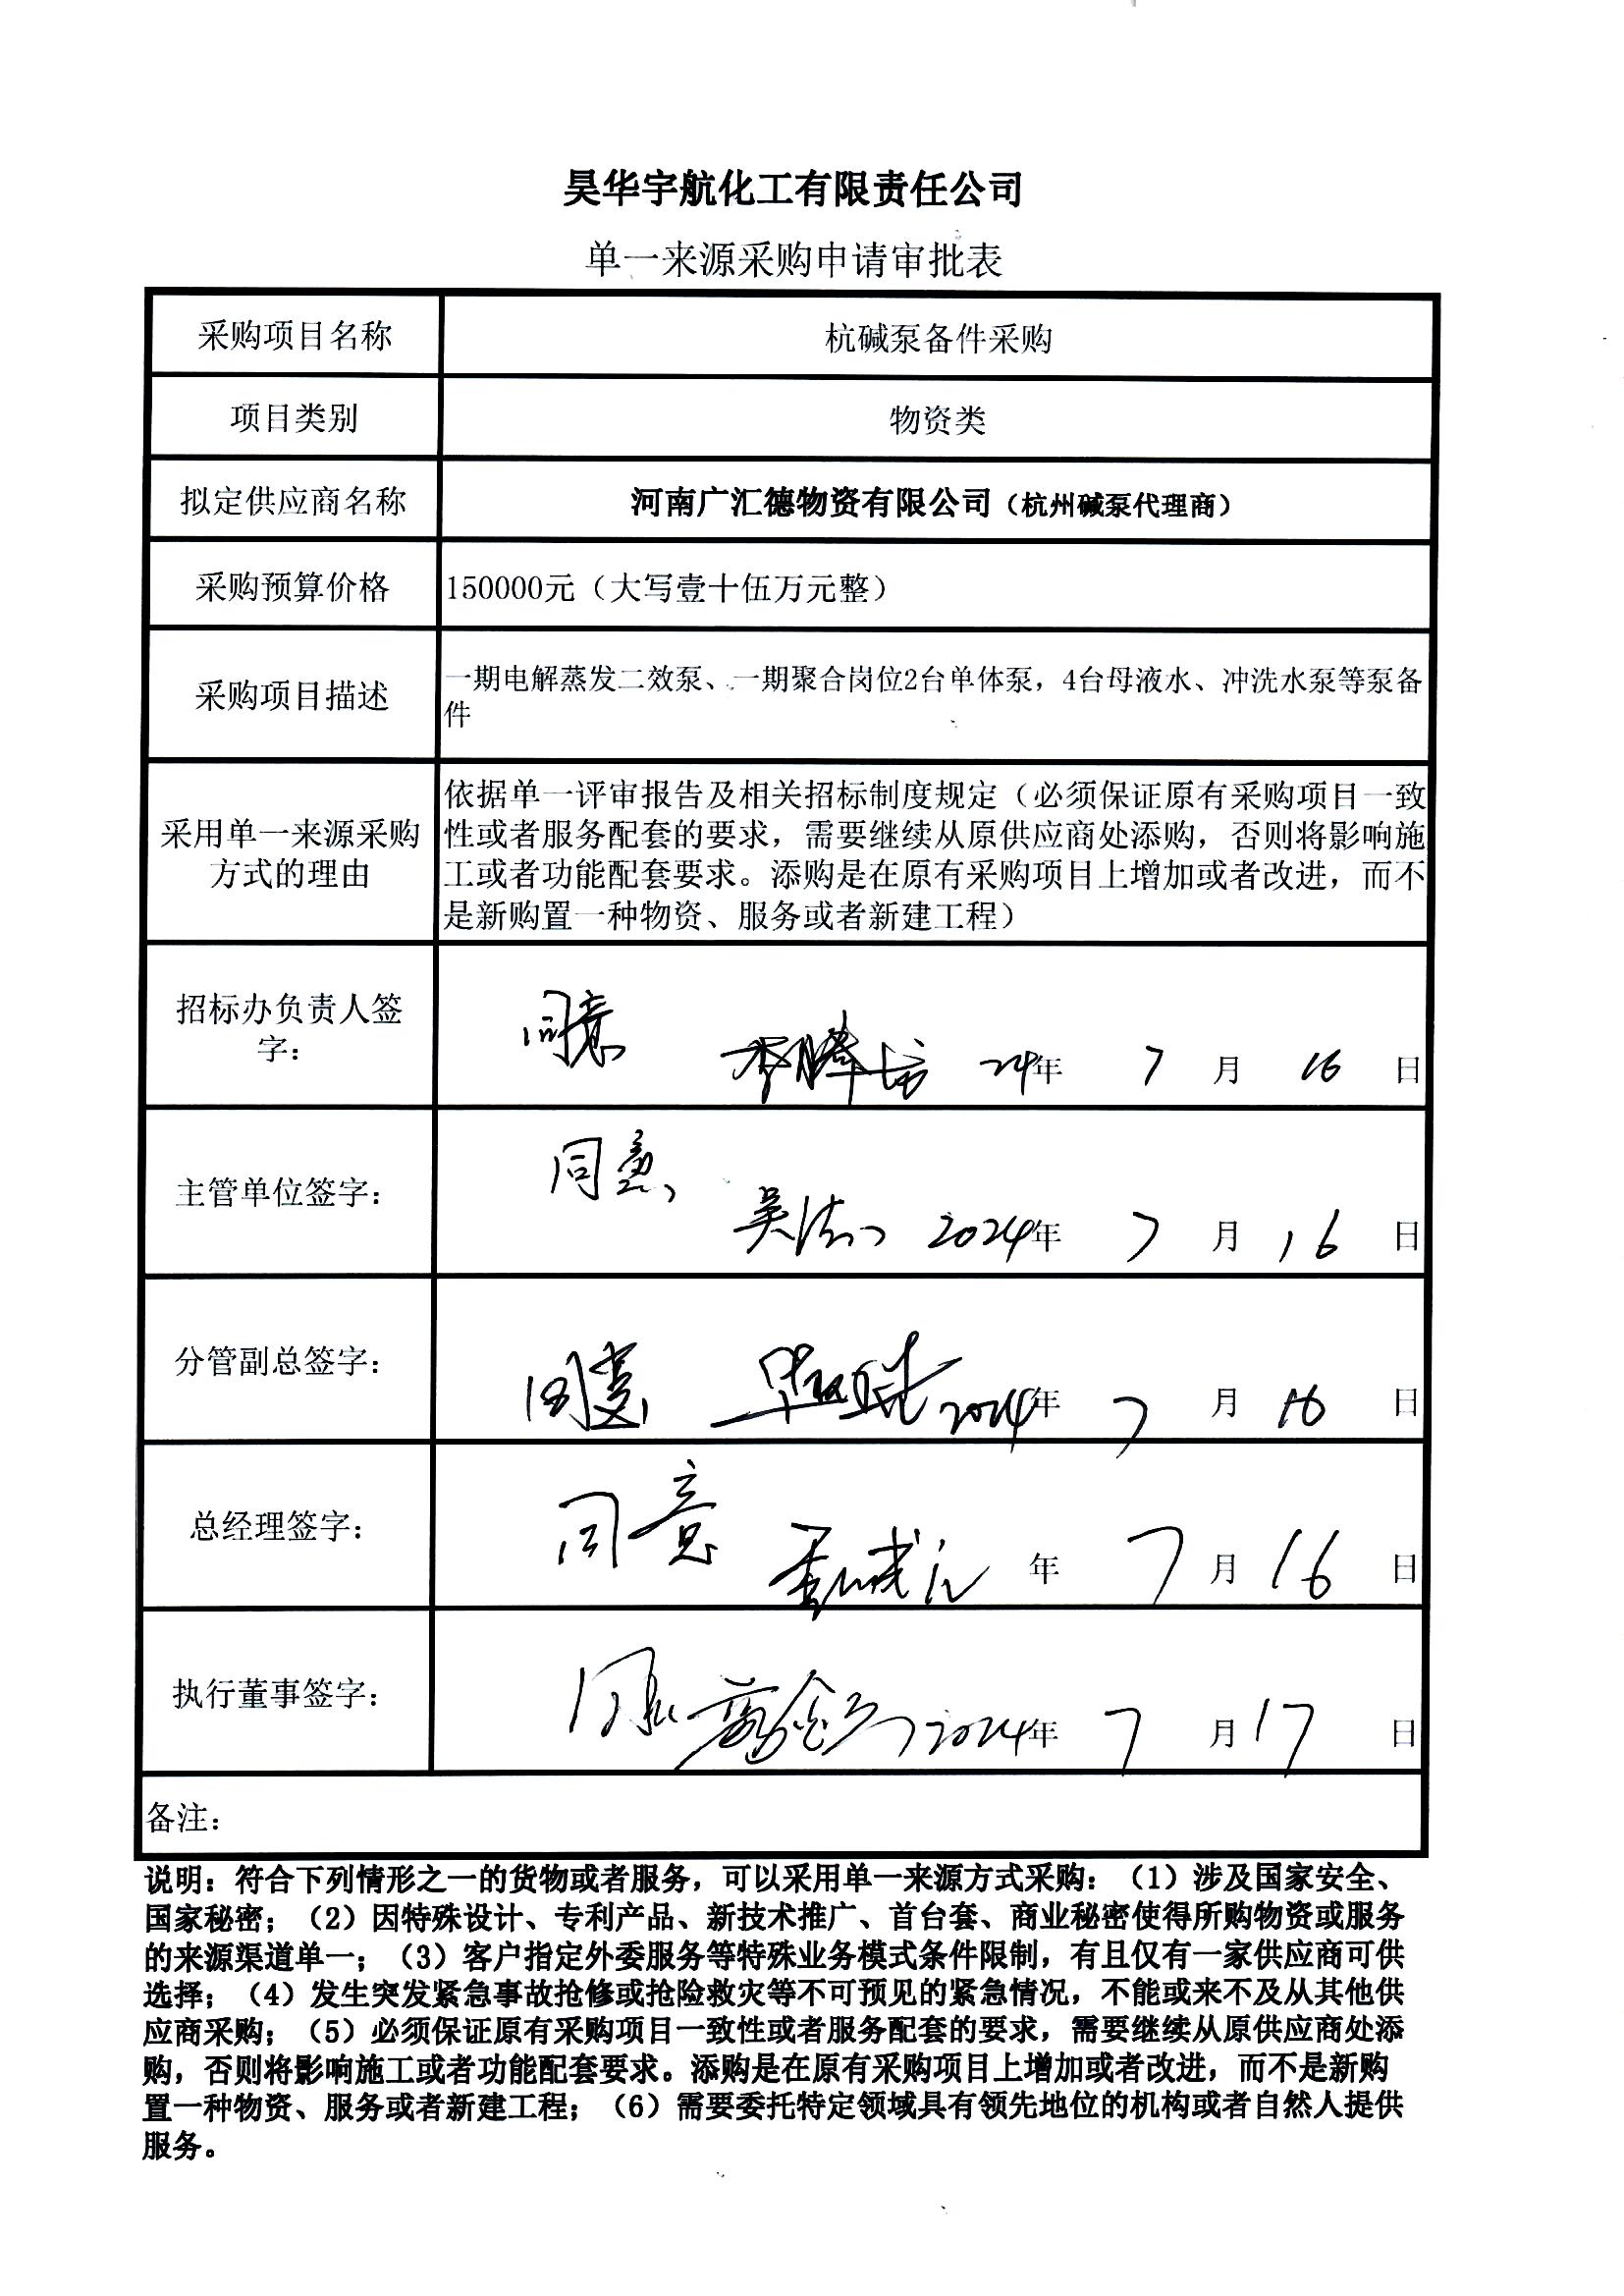 昊华宇航化工有限责任公司
单一来源采购申请审批表
采购项目名称
杭碱泵备件采购
项目类别
物资类
拟定供应商名称
河南广汇德物资有限公司（杭州碱泵代理商）
采购预算价格
150000元（大写壹十伍万元整）
采购项目描述
一期电解蒸发二效泵、一期聚合岗位2台单体泵，4台母液水、冲洗水泵等泵备
件
采用单一来源采购
方式的理由
依据单一评审报告及相关招标制度规定（必须保证原有采购项目一致
性或者服务配套的要求，需要继续从原供应商处添购，否则将影响施
工或者功能配套要求。添购是在原有采购项目上增加或者改进，而不
是新购置一种物资、服务或者新建工程）
招标办负责人签
字：
同意
24年 7 月 16 日
主管单位签字：
同意
2024年 7 月 16 日
分管副总签字：
同意
2024年 7 月 16 日
总经理签字：
同意
年 7 月 16 日
执行董事签字：
同意
2024年 7 月 17 日
备注：
说明：符合下列情形之一的货物或者服务，可以采用单一来源方式采购：（1）涉及国家安全、
国家秘密；（2）因特殊设计、专利产品、新技术推广、首台套、商业秘密使得所购物资或服务
的来源渠道单一；（3）客户指定外委服务等特殊业务模式条件限制，有且仅有一家供应商可供
选择；（4）发生突发紧急事故抢修或抢险救灾等不可预见的紧急情况，不能或来不及从其他供
应商采购；（5）必须保证原有采购项目一致性或者服务配套的要求，需要继续从原供应商处添
购，否则将影响施工或者功能配套要求。添购是在原有采购项目上增加或者改进，而不是新购
置一种物资、服务或者新建工程；（6）需要委托特定领域具有领先地位的机构或者自然人提供
服务。